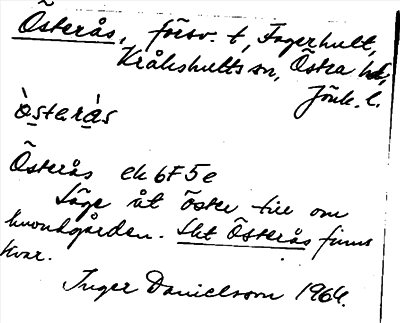 Österås, försv. t, Fagerhult,
Kråkshults sn, Östra hd,
Jönk. l.
ò̱staràs
Österås ek 6F5e
Läge åt öster till om
huvudgården. Sht Österås finns
kvar.
Inger Danielsson 1964.